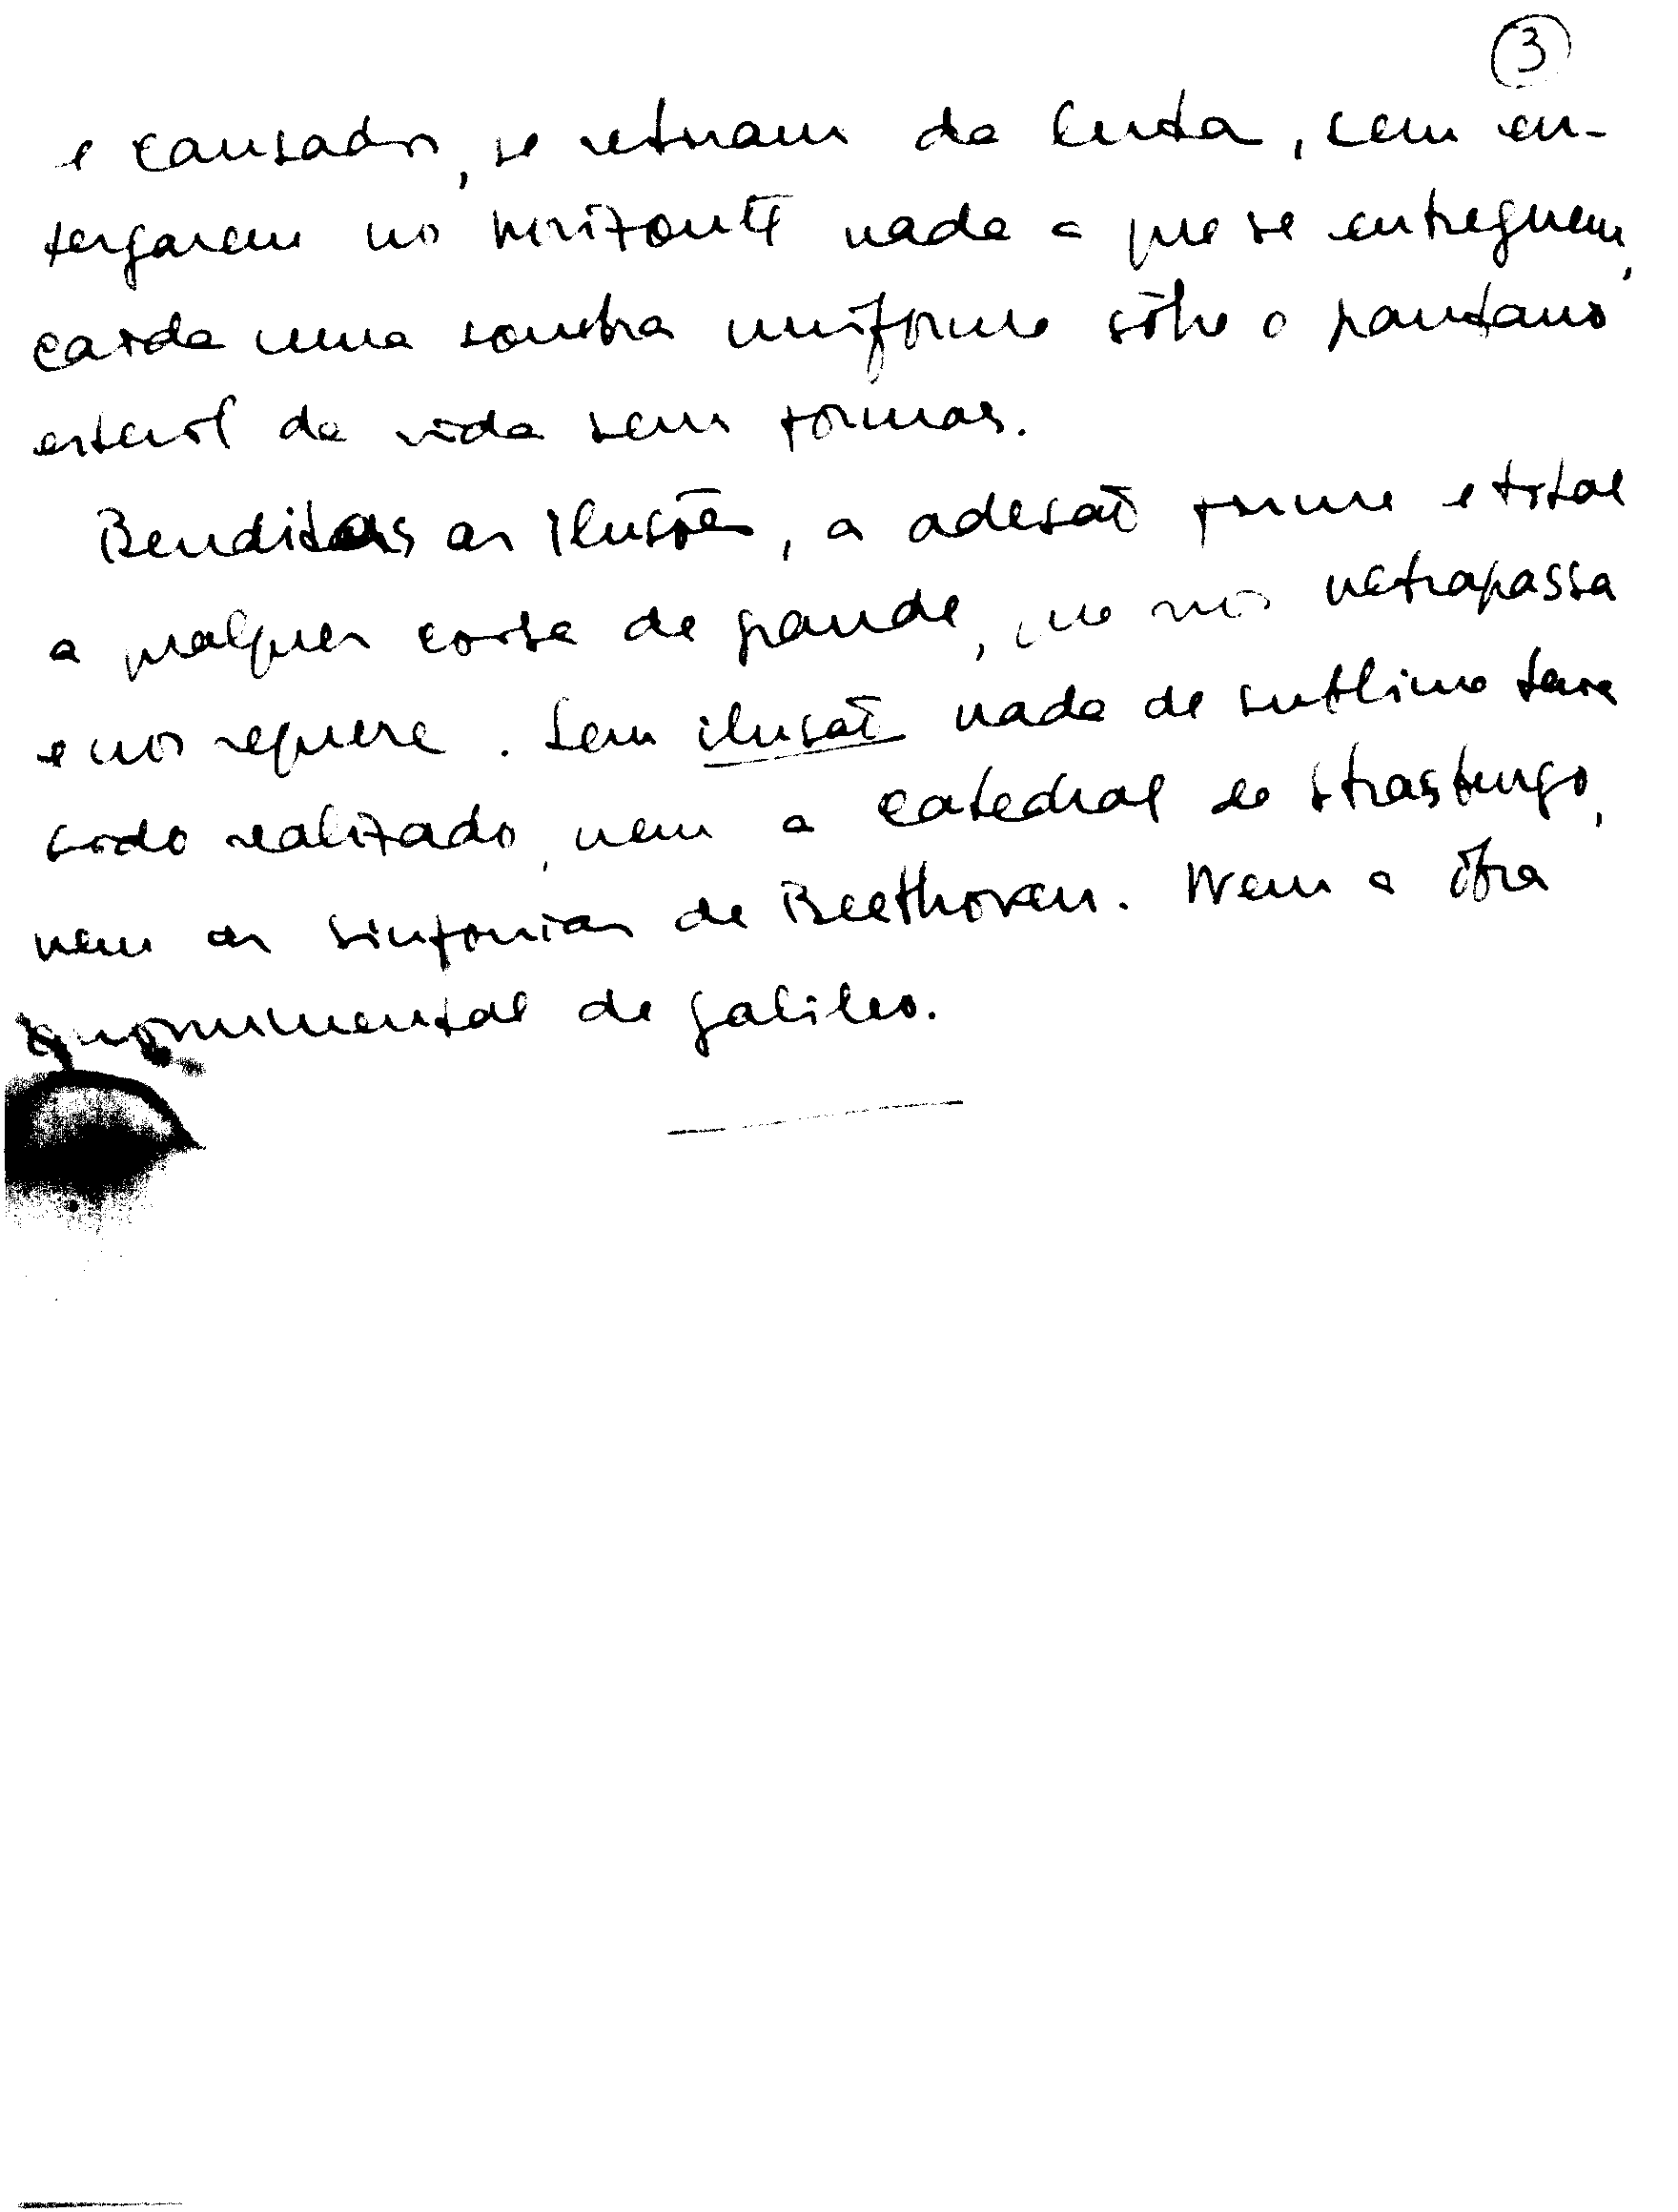 3
e cansados, se retiram da luta, sem en-
xergarem no horizonte nada a que se entreguem,
caída uma sombra uniforme sôbre o pantano
esteril da vida sem formas.
Benditas as ilusões, a adesão firme e total
a qualquer coisa de grande, que nos ultrapassa
e nos requere. Sem ilusão nada de sublime teria
sido realizado, nem a catedral de Strasburgo,
nem as sinfonias de Beethoven. Nem a obra
monumental de Galileo.